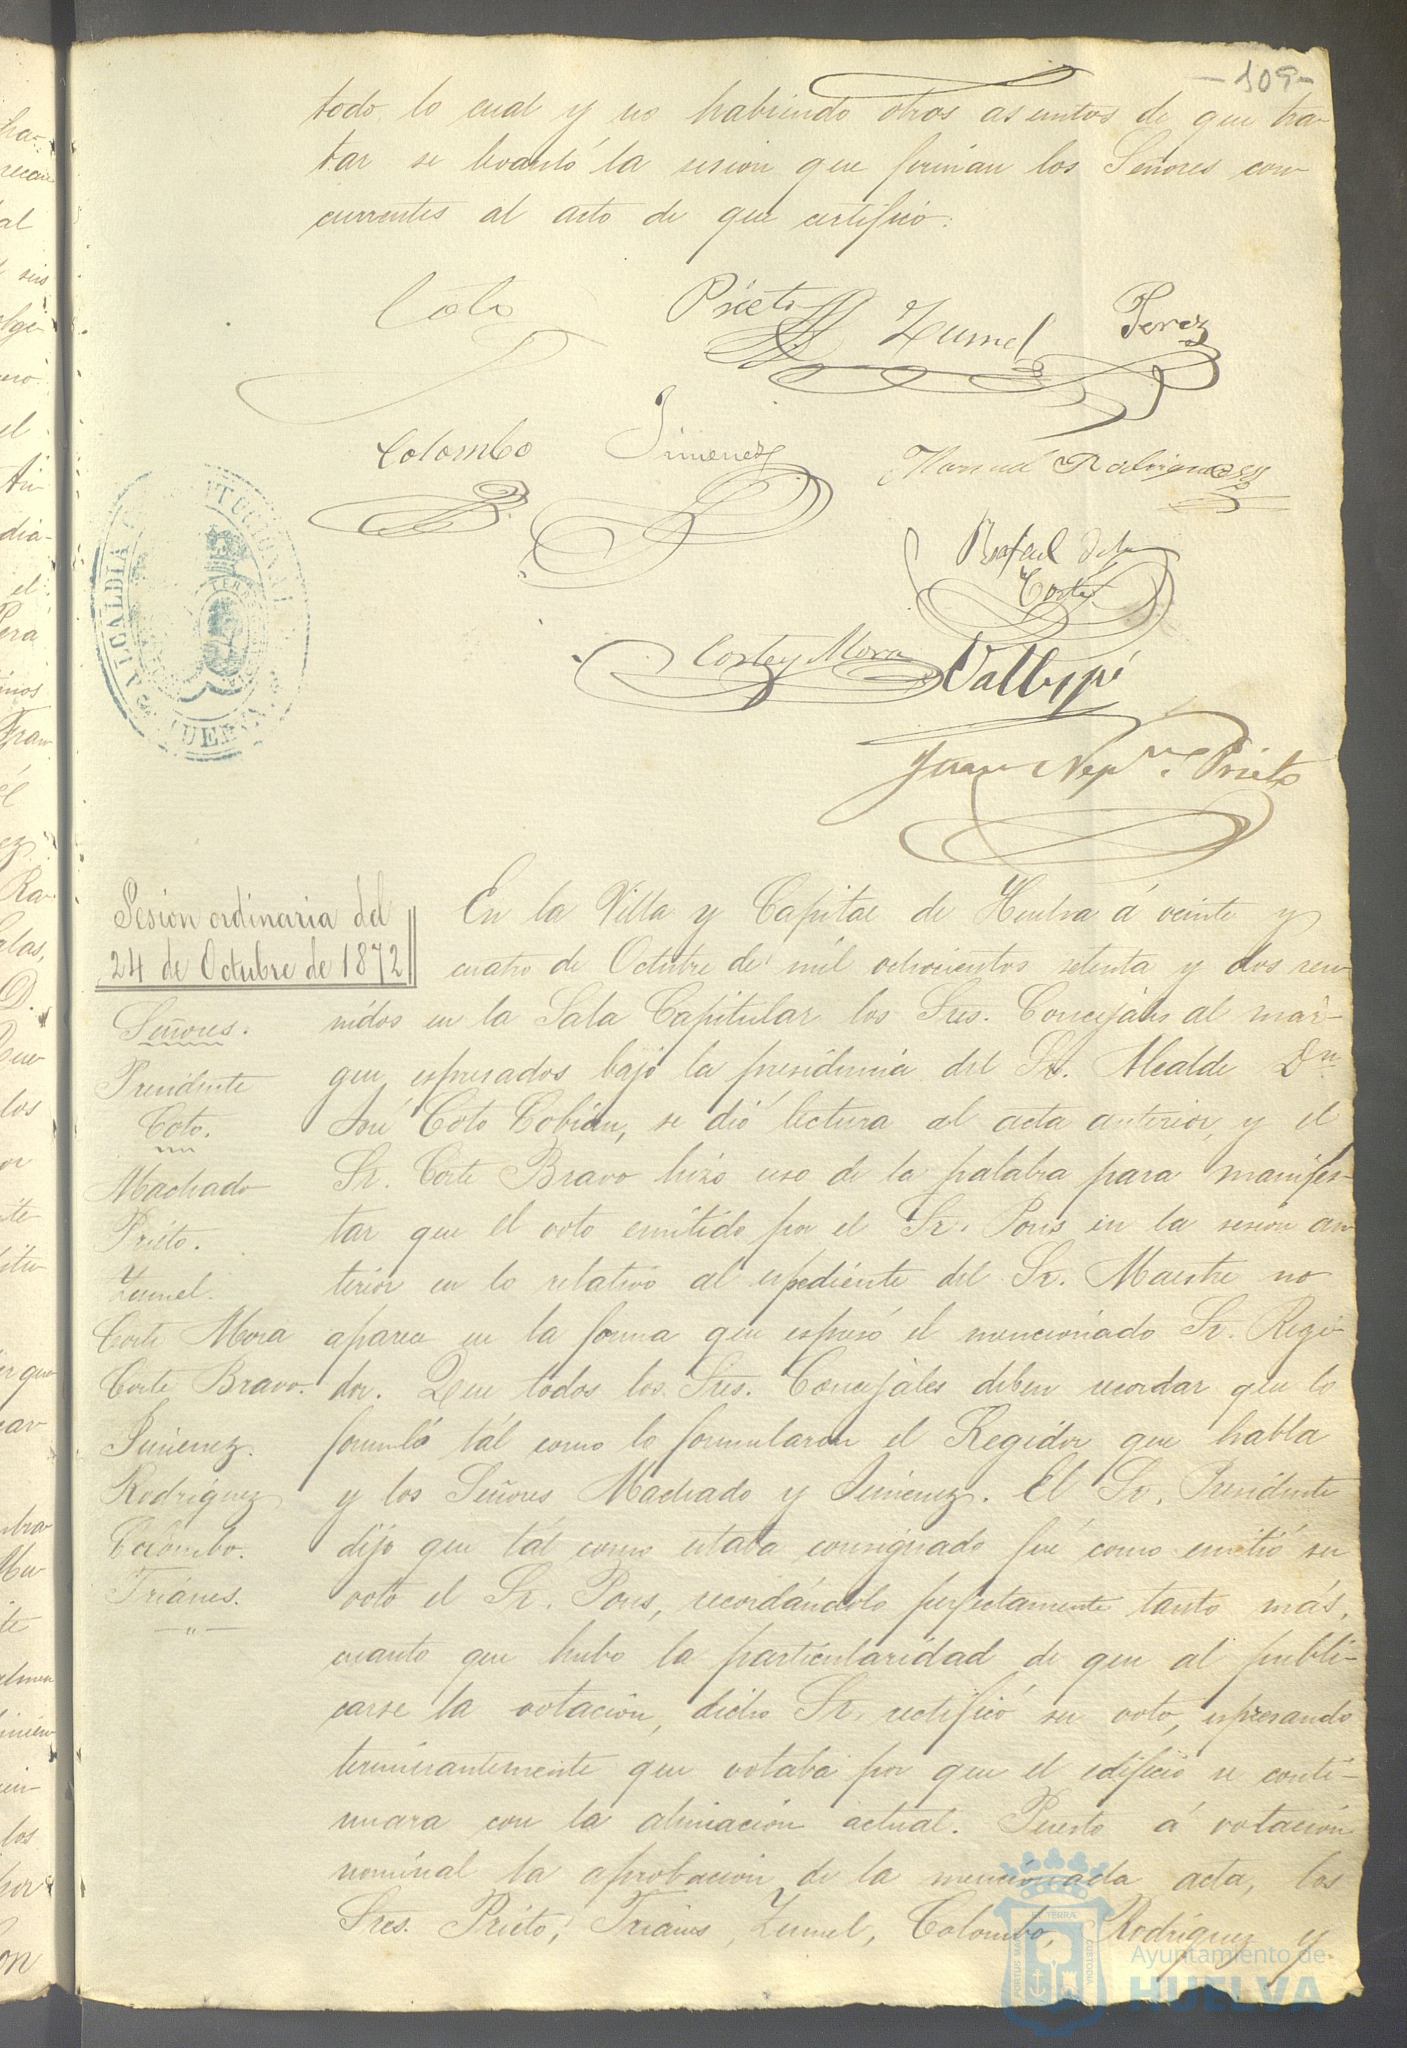 -109-
todo lo cual y no habiendo otros asuntos de que tra-
tar se levantó la sesion que firman los Señores con-
currentes al acto de que certifico.
Coto Prieto Zumel Perez
Colombo Jimenez Manuel Rodriguez
Rafael de la
Corte
Corte y Mora Vallespí
Juan Nepno. Prieto
ALCALDIA CONSTITUCIONAL
HUELVA
Sesion ordinaria del
24 de Octubre de 1872
Señores.
Presidente
Coto.
Machado
Prieto.
Zumel.
Corte Mora
Corte Bravo.
Jimenez.
Rodriguez
Colombo.
Trianes.
En la Villa y Capital de Huelva á veinte y
cuatro de Octubre de mil ochocientos setenta y dos reu-
nidos en la Sala Capitular los Sres. Concejales al mar-
gen espresados bajo la presidencia del Sr. Alcalde Dn.
José Coto Cobian, se dió lectura al acta anterior, y el
Sr. Corte Bravo hizo uso de la palabra para manifes-
tar que el voto emitido por el Sr. Pons en la sesion an-
terior en lo relativo al espediente del Sr. Maestre no
aparece en la forma que espresó el mencionado Sr. Regi-
dor. Que todos los Sres. Concejales deben recordar que lo
formuló tál como lo formularon el Regidor que habla
y los Señores Machado y Jimenez. El Sr. Presidente
dijo que tál como estaba consignado fué como emitió su
voto el Sr. Pons, recordándolo perfectamente tanto más,
cuanto que hubo la particularidad de que al publi-
carse la votacion, dicho Sr. rectificó su voto, espresando
terminantemente que votaba por que el edificio se conti-
nuara con la alineacion actual. Puesto á votacion
nominal la aprobacion de la mencionada acta, los
Sres. Prieto, Trianes, Zumel, Colombo, Rodriguez y
Ayuntamiento de
HUELVA